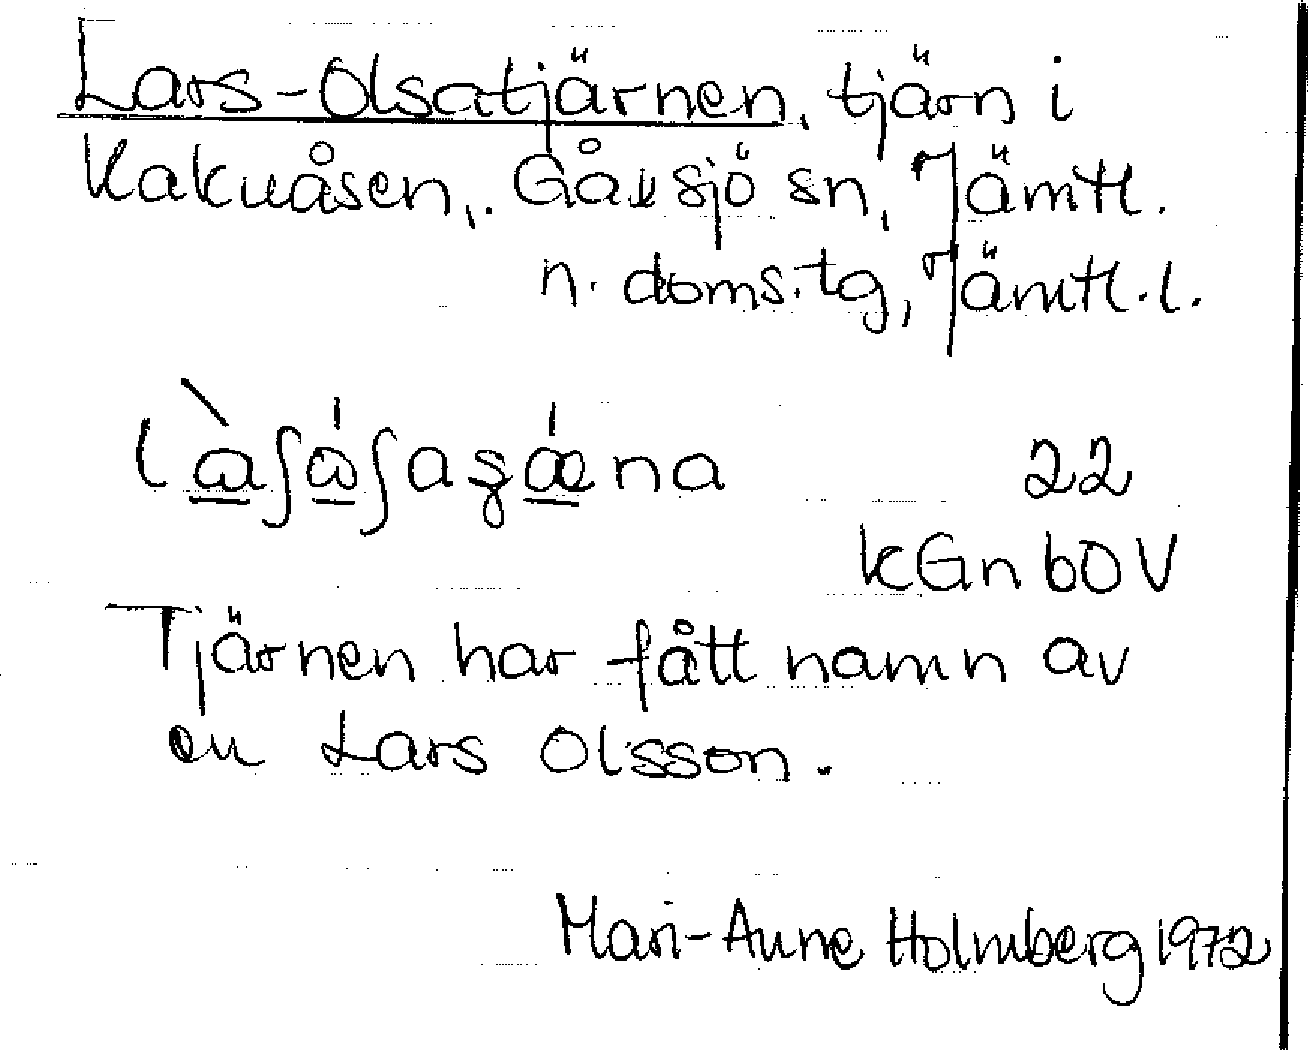 Lars-Olsatjärnen, tjärn i
Kakuåsen, Gåxsjö sn, Jämtl.
n. doms.tg, Jämtl.l.
22
kGn60V
Tjärnen har fått namn av
en Lars Olsson.
Mari-Anne Holmberg 1972